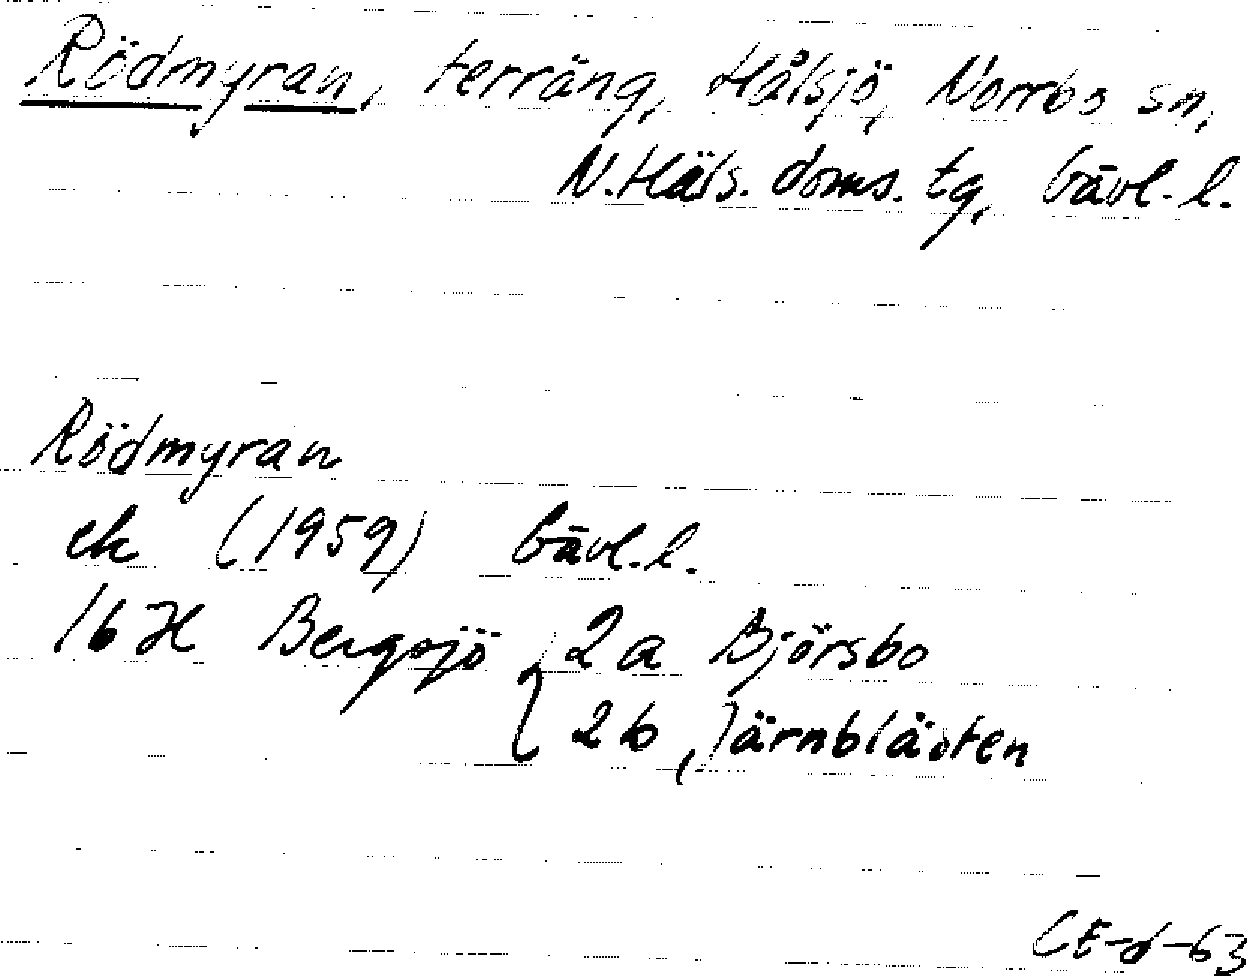 Rödmyran, terräng, Hålsjö, Norrbo sn,
N. Häls. doms. tg, Gävl. l.
Rödmyran
ek (1959) Gävl. l.
16 H Bergsjö { 2a Björsbo
2b Järnblästen
CE-d-63